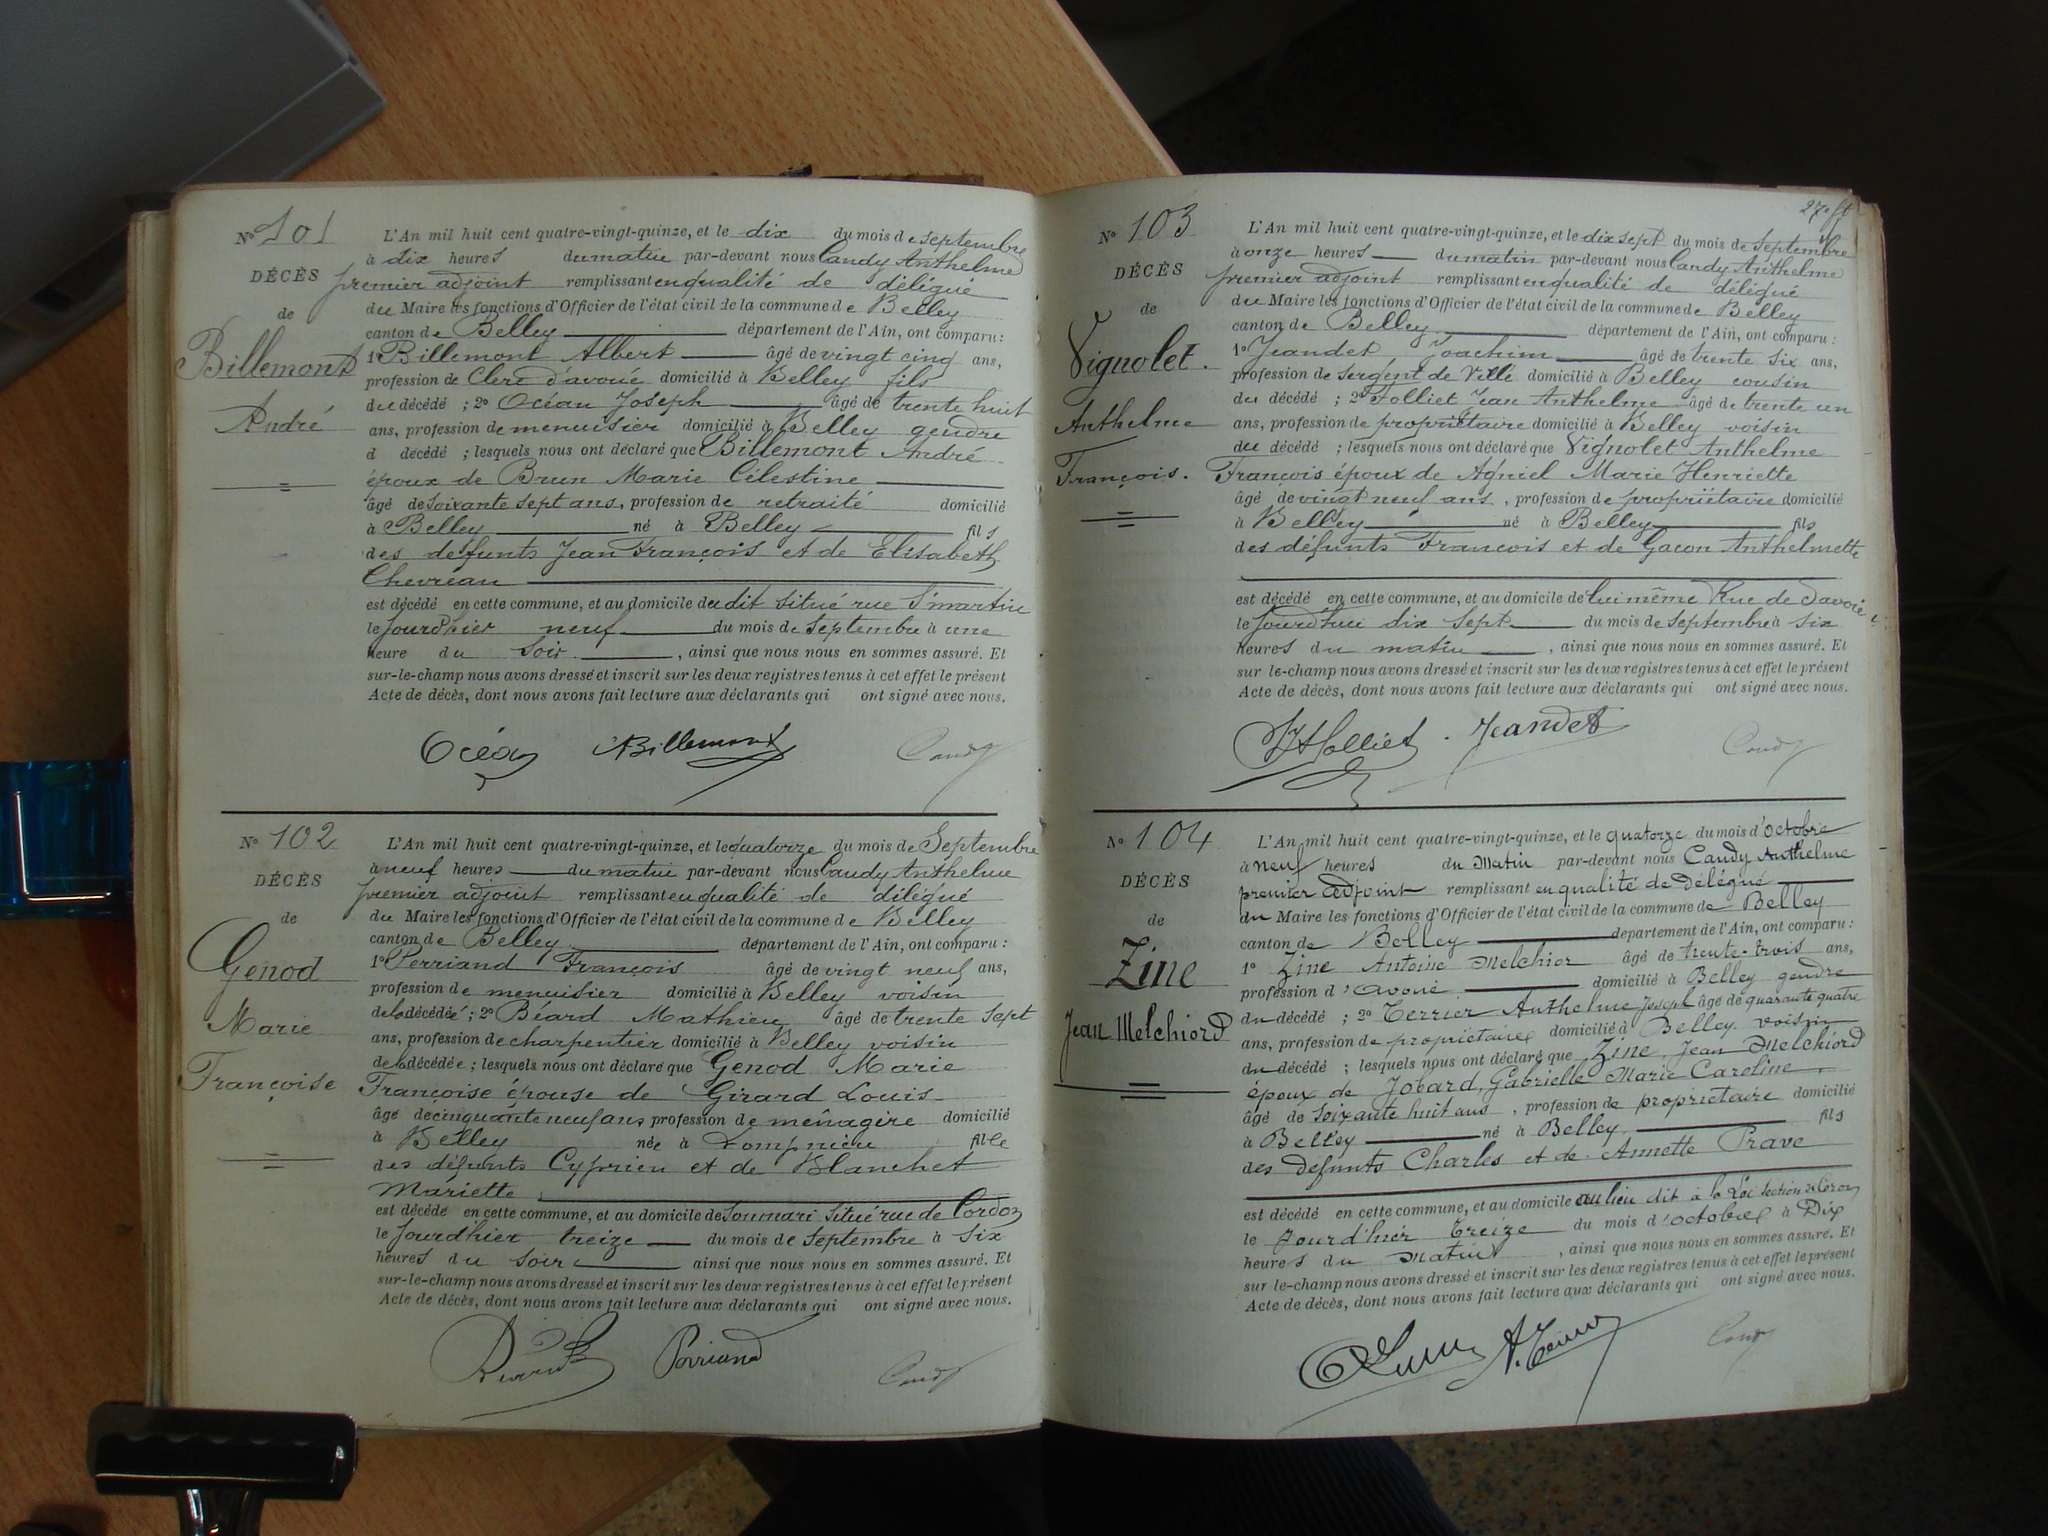 Nº 101
DÉCÈS
de
Billemont
André
L'An mil huit cent quatre-vingt-quinze, et le dix du mois de septembre
à dix heures du matin par-devant nous Candy Anthelme
premier adjoint remplissant en qualité de délégué
du Maire les fonctions d'Officier de l'état civil de la commune de Belley
canton de Belley département de l'Ain, ont comparu :
1º Billemont Albert âgé de vingt cinq ans,
profession de Clerc d'avoué domicilié à Belley fils
du décédé ; 2º Océan Joseph âgé de trente huit
ans, profession de menuisier domicilié à Belley gendre
d décédé ; lesquels nous ont déclaré que Billemont André
époux de Brun Marie Célestine
âgé de soixante sept ans, profession de retraité domicilié
à Belley né à Belley fils
des défunts Jean François et de Elisabeth
Chevreau
est décédé en cette commune, et au domicile du dit situé rue St martin
le jourd'hier neuf du mois de septembre à une
heure du soir, ainsi que nous nous en sommes assuré. Et
sur-le-champ nous avons dressé et inscrit sur les deux registres tenus à cet effet le présent
Acte de décès, dont nous avons fait lecture aux déclarants qui ont signé avec nous.
Océan ABillemont Candy
Nº 102
DÉCÈS
de
Genod
Marie
Françoise
L'An mil huit cent quatre-vingt-quinze, et le quatorze du mois de Septembre
à neuf heures du matin par-devant nous Candy Anthelme
premier adjoint remplissant en qualité de délégué
du Maire les fonctions d'Officier de l'état civil de la commune de Belley
canton de Belley département de l'Ain, ont comparu :
1º Perriand François âgé de vingt neuf ans,
profession de menuisier domicilié à Belley voisin
de la décédée ; 2º Béard Mathieu âgé de trente sept
ans, profession de charpentier domicilié à Belley voisin
de la décédée ; lesquels nous ont déclaré que Genod Marie
Françoise épouse de Girard Louis
âgé de cinquante neuf ans profession de ménagère domicilié
à Belley née à Lompnieu fille
des défunts Cyprien et de Blanchet
Mariette
est décédé en cette commune, et au domicile de son mari situé rue de Cordon
le jourd'hier treize du mois de septembre à six
heures du soir ainsi que nous nous en sommes assuré. Et
sur-le-champ nous avons dressé et inscrit sur les deux registres tenus à cet effet le présent
Acte de décès, dont nous avons fait lecture aux déclarants qui ont signé avec nous.
Perriand Candy
27e ft
Nº 103
DÉCÈS
de
Vignolet.
Anthelme
François.
L'An mil huit cent quatre-vingt-quinze, et le dix sept du mois de septembre
à onze heures du matin par-devant nous Candy Anthelme
premier adjoint remplissant en qualité de délégué
du Maire les fonctions d'Officier de l'état civil de la commune de Belley
canton de Belley département de l'Ain, ont comparu :
1º Jeandet Joachim âgé de trente six ans,
profession de sergent de Ville domicilié à Belley cousin
du décédé ; 2º Folliet Jean Anthelme âgé de trente un
ans, profession de propriétaire domicilié à Belley voisin
du décédé ; lesquels nous ont déclaré que Vignolet Anthelme
François époux de Agniel Marie Henriette
âgé de vingt neuf ans, profession de propriétaire domicilié
à Belley né à Belley fils
des défunts François et de Gacon Anthelmette
est décédé en cette commune, et au domicile de lui même Rue de Savoie
le jourd'hui dix sept du mois de septembre à six
heures du matin, ainsi que nous nous en sommes assuré. Et
sur-le-champ nous avons dressé et inscrit sur les deux registres tenus à cet effet le présent
Acte de décès, dont nous avons fait lecture aux déclarants qui ont signé avec nous.
Folliet. Jeandet Candy
Nº 104
DÉCÈS
de
Zine
Jean Melchiord
L'An mil huit cent quatre-vingt-quinze, et le quatorze du mois d'octobre
à neuf heures du Matin par-devant nous Candy Anthelme
premier adjoint remplissant en qualité de Délégué
du Maire les fonctions d'Officier de l'état civil de la commune de Belley
canton de Belley département de l'Ain, ont comparu :
1º Zine Antoine Melchior âgé de trente-trois ans,
profession d'avoué domicilié à Belley gendre
du décédé ; 2º Terrier Anthelme Joseph âgé de quarante quatre
ans, profession de propriétaire domicilié à Belley voisin
du décédé ; lesquels nous ont déclaré que Zine Jean Melchiord
époux de Jobard, Gabrielle Marie Caroline
âgé de soixante huit ans, profession de propriétaire domicilié
à Belley né à Belley fils
des défunts Charles et de Annette Prave
est décédé en cette commune, et au domicile au lieu dit à la section de
le jourd'hier treize du mois d'octobre à Dix
heures du Matin, ainsi que nous nous en sommes assuré. Et
sur-le-champ nous avons dressé et inscrit sur les deux registres tenus à cet effet le présent
Acte de décès, dont nous avons fait lecture aux déclarants qui ont signé avec nous.
Candy